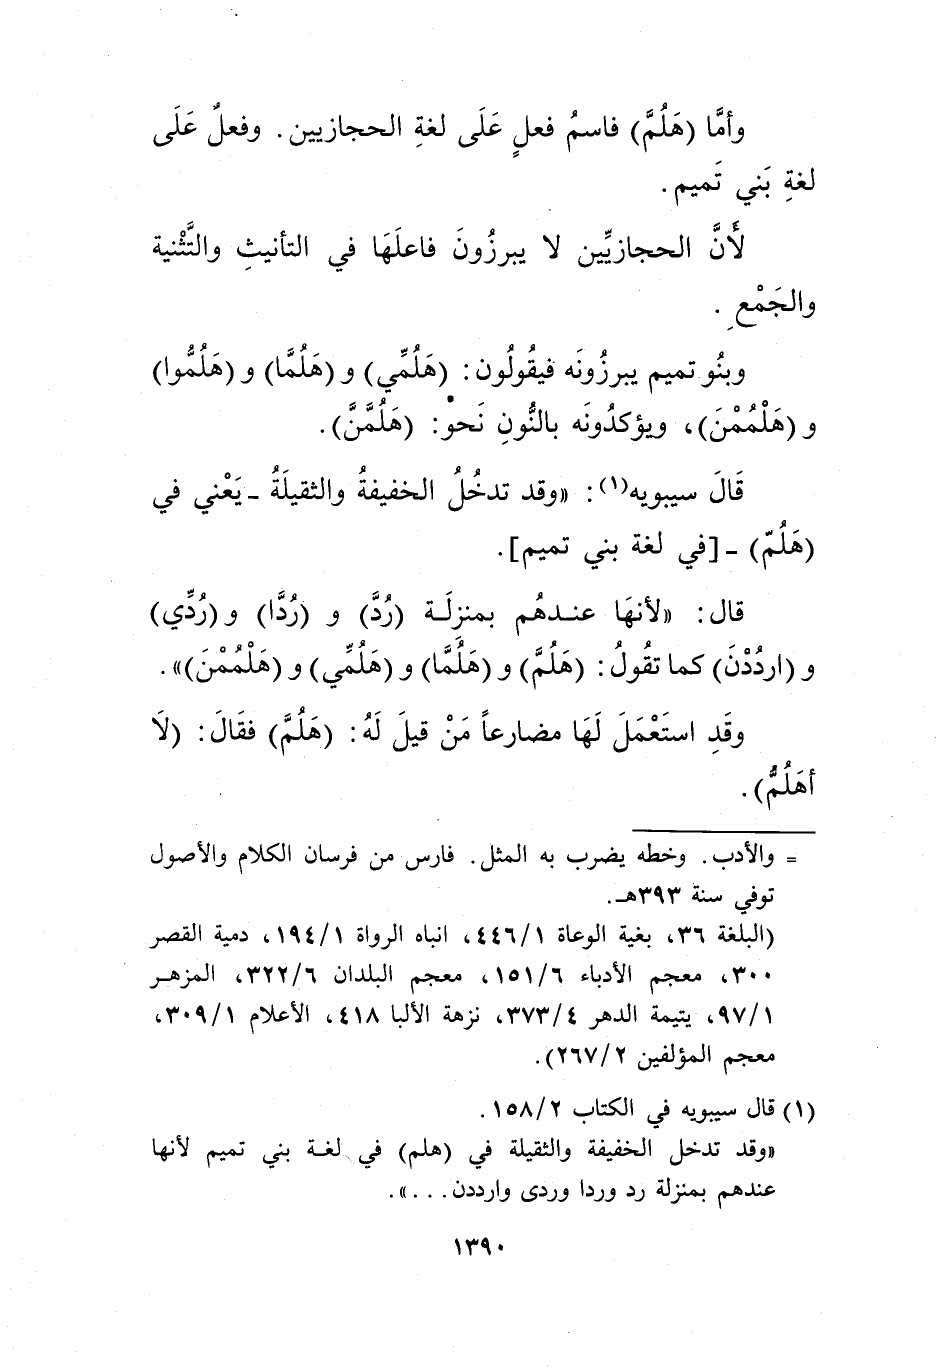 وأمَّا (هَلُمَّ) فاسمُ فعلٍ عَلَى لغةِ الحجازيين. وفعلٌ عَلَى
لغةِ بَني تَميم.
لأَنَّ الحجازيِّين لا يبرزُونَ فاعلَهَا في التأنيثِ والتَّثْنية
والجَمْعِ.
وبنُو تميم يبرزُونَه فيقُولُون: (هَلُمِّي) و (هَلُمَّا) و (هَلُمُّوا)
و (هَلْمُمْنَ)، ويؤكدُونَه بالنُّونِ نَحوْ: (هَلُمَّنَّ).
قَالَ سيبويه(١): «وقد تدخُلُ الخفيفةُ والثقيلَةُ -يَعْني في
(هَلُمّ) -[في لغة بني تميم].
قال: «لأنهَا عندهُم بمنزلَة (رُدَّ) و (رُدَّا) و (رُدِّي)
و (اردُدْنَ) كما تقُولُ: (هَلُمَّ) و (هَلُمَّا) و (هَلُمِّي) و (هَلْمُمْنَ)».
وقَدِ استَعْمَلَ لَهَا مضارعاً مَنْ قيلَ لَهُ: (هَلُمَّ) فقَالَ: (لَا
أهَلُمُّ).
= والأدب. وخطه يضرب به المثل. فارس من فرسان الكلام والأصول
توفي سنة ٣٩٣هـ.
(البلغة ٣٦، بغية الوعاة ١/٤٤٦، انباه الرواة ١/١٩٤، دمية القصر
٣٠٠، معجم الأدباء ٦/١٥١، معجم البلدان ٦/٣٢٢، المزهر
١/٩٧، يتيمة الدهر ٤/٣٧٣، نزهة الألبا ٤١٨، الأعلام ١/٣٠٩،
معجم المؤلفين ٢/٢٦٧).
(١) قال سيبويه في الكتاب ٢/١٥٨.
«وقد تدخل الخفيفة والثقيلة في (هلم) في لغة بني تميم لأنها
عندهم بمنزلة رد وردا وردى وارددن...».
١٣٩٠